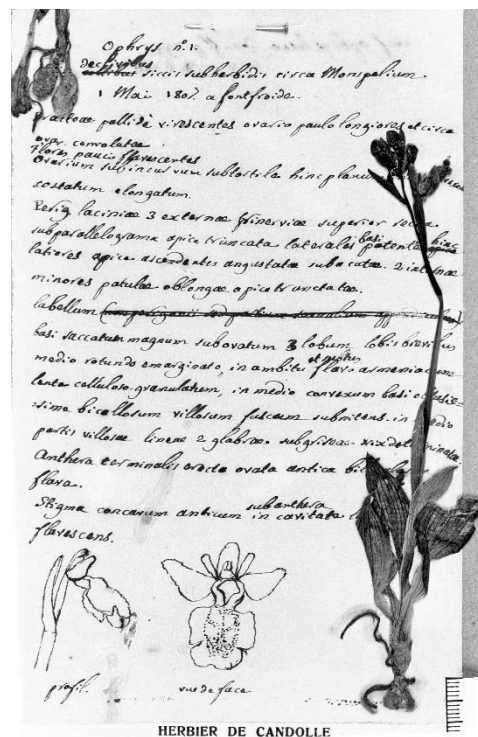 Ophrys n.º 1.
declivibus
collibus siccis subherbidis circa Monspelium.
1 Mai 1807. a fontfroide.
Bracteae pallidè virescentes ovario paulo longiores et circa
ovar. convolutae
flores pauci flavescentes
Ovarium subincurvum subtortile hinc planu
costatum elongatum.
Perig laciniae 3 externae trinerviae superior
subparallelograma apice truncata laterales basi patentes hinc
latiores apice ascendentes angustatae subacutae. 2 internae
minores patulae oblongae apice truncatae.
labellum
basi saccatum magnum subovatum 3 lobum, lobis brevibus
medio rotundo emarginato, in ambitu flavo armeniacum
et
lente celluloso-granulatum, in medio convexum basi
sime bicallosum villosum fuscum subnitens. in medio
partis villosae lineae 2 glabrae subgriseae vix
Anthera terminalis erecta ovata antica bi
flava.
subanthera
Stigma concavum anticum in cavitate
flavescens.
profil.
vue de face
HERBIER DE CANDOLLE